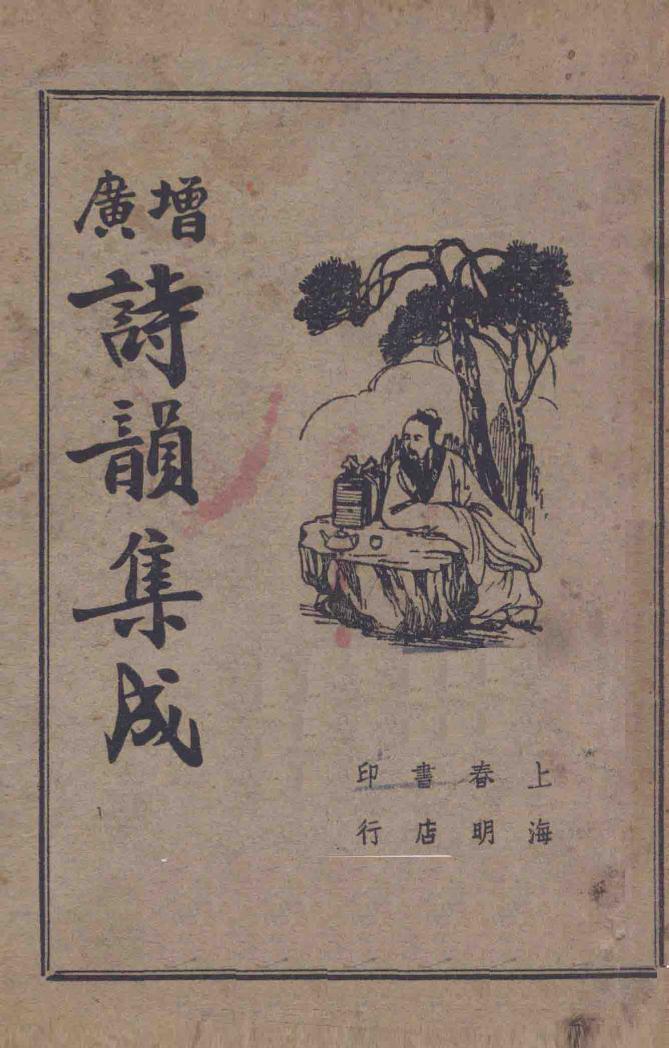 增廣
詩韻集成
上海
春明
書店
印行